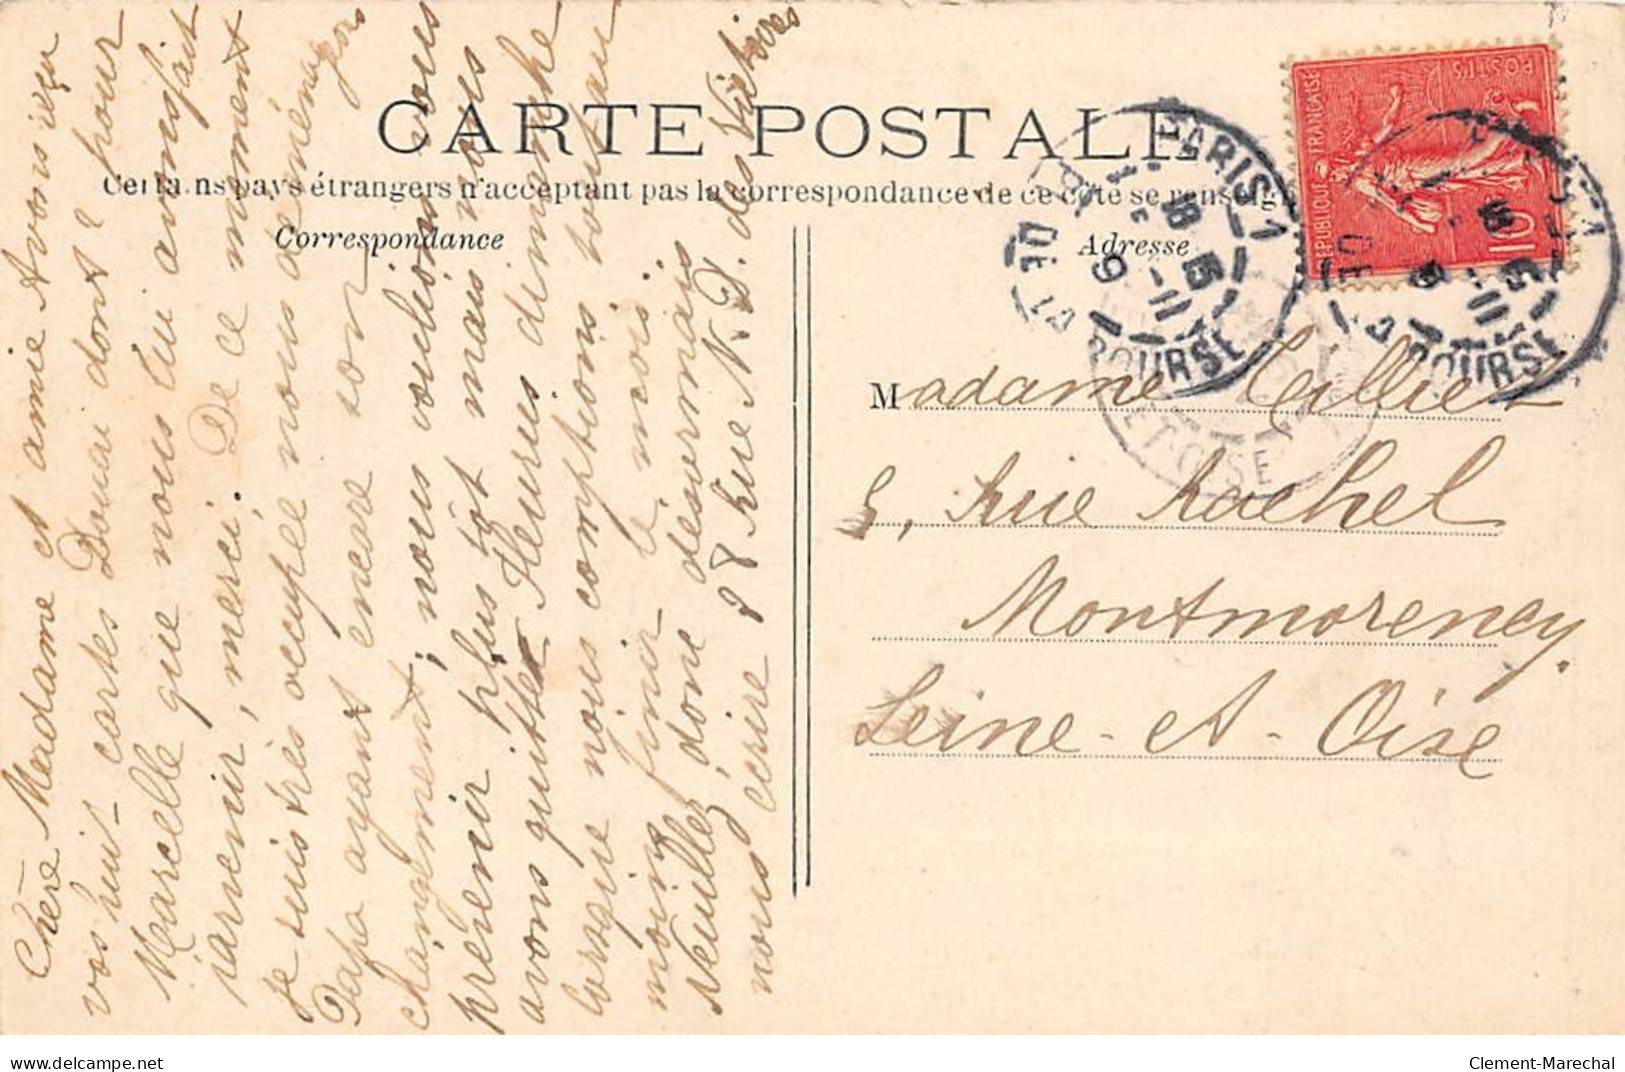 CARTE POSTALE
Certains pays étrangers n'acceptant pas la correspondance de ce côté se renseigner
Correspondance
Adresse
Chère Madame et amie Avons reçu
vos huit cartes Douai dont 2 pour
Marcelle que nous lui avons fait
parvenir, merci. De ce moment
je suis très occupée nous déménageons
Papa ayant encore son
changement, nous voulions vous
prévenir plus tôt mais nous
avons quitter Fleurus dimanche
lorsque nous comptions tout au
moins finir le mois.
Veuillez, donc désormais
nous écrire 28 Rue N. D. des Victoires
RÉPUBLIQUE FRANÇAISE
POSTES
10
PARIS 1
18 15
11
PL. DE LA BOURSE
PARIS 1
18 15
11
DE LA BOURSE
ET-OISE
Madame Tellier
5, Rue Rachel
Montmorency.
Seine-et-Oise
delcampe.net
Clement-Marechal